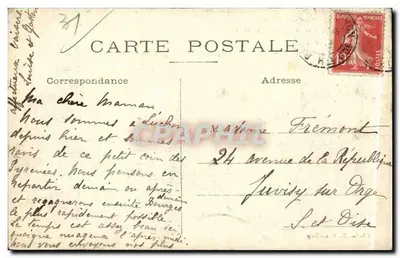 31
CARTE POSTALE
Correspondance
Adresse
affectueux baisers
Louise et
Ma chère Maman
Nous sommes à
depuis hier et sommes
ravis de ce petit coin des
Pyrénées. Nous pensons en
repartir demain ou après
demain
et regagnerons ensuite Bourges
le plus rapidement possible.
Le temps est assez beau
quoique nuageux l'après-midi
nous vous envoyons nos plus
Madame Frémont
24 avenue de la République
Juvisy sur Orge
S. et Oise